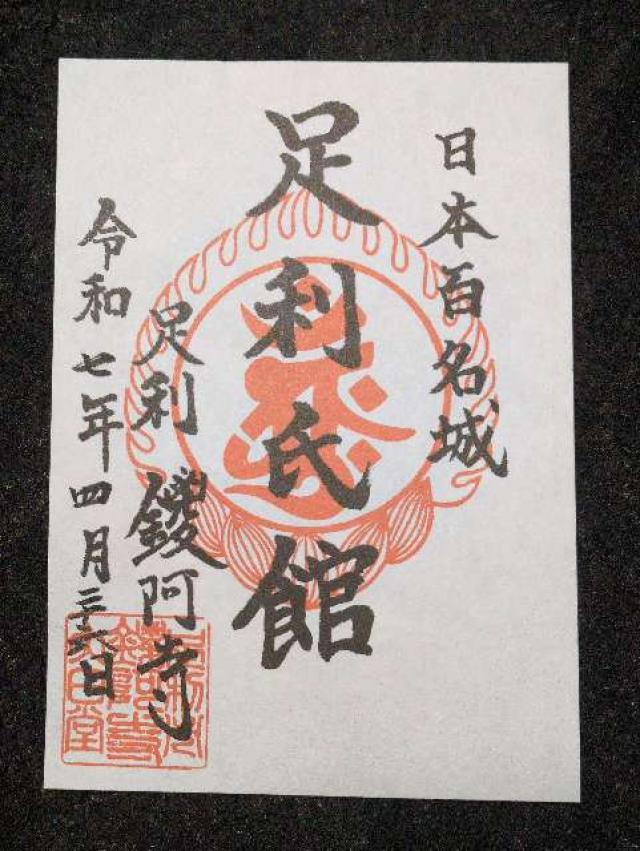 日本百名城
足利氏館
足利 鑁阿寺
令和七年四月二十六日